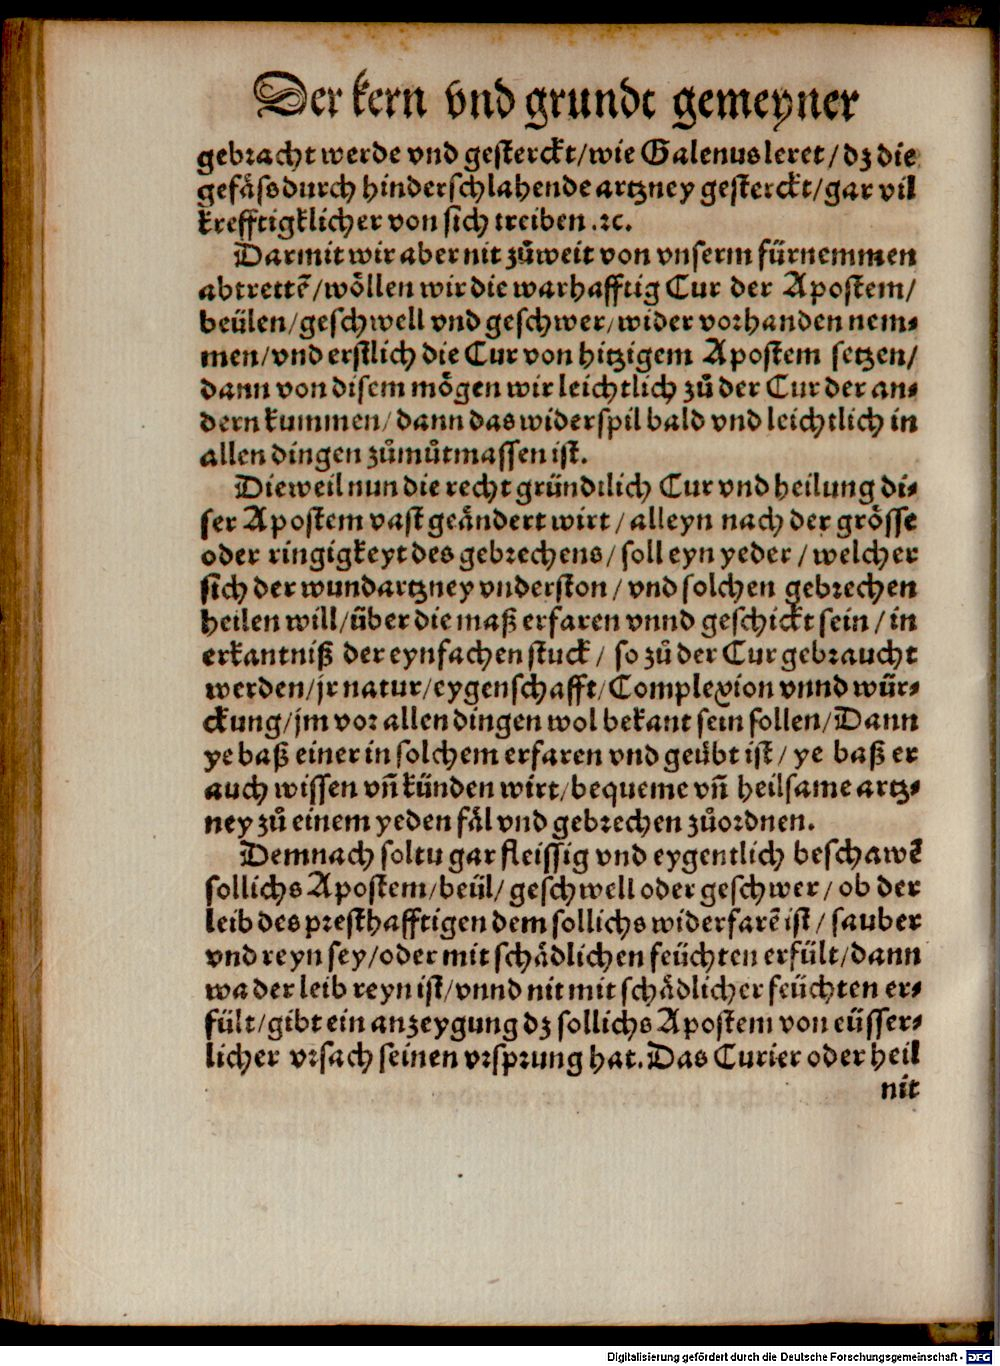 Der kern vnd grundt gemeyner
gebracht werde vnd gesterckt/wie Galenus leret/dz die
gefäſs durch hinderschlahende artzney gesterckt/gar vil
krefftigklicher von sich treiben.ꝛc.
Darmit wir aber nit zůweit von vnserm fürnemmen
abtrettē/wöllen wir die warhafftig Cur der Apostem/
beülen/geschwell vnd geschwer/wider vorhanden nem⸗
men/vnd erstlich die Cur von hitzigem Apostem setzen/
dann von disem mögen wir leichtlich zů der Cur der an⸗
dern kummen/dann das widerspil bald vnd leichtlich in
allen dingen zůmůtmassen ist.
Dieweil nun die recht gründtlich Cur vnd heilung di⸗
ser Apostem vast geändert wirt/alleyn nach der grösse
oder ringigkeyt des gebrechens/soll eyn yeder/welcher
sich der wundartzney vnderston/vnd solchen gebrechen
heilen will/über die maß erfaren vnnd geschickt sein/in
erkantniß der eynfachen stuck/so zů der Cur gebraucht
werden/jr natur/eygenschafft/Complexion vnnd wür⸗
ckung/jm vor allen dingen wol bekant sein sollen/Dann
ye baß einer in solchem erfaren vnd geübt ist/ye baß er
auch wissen vñ künden wirt/bequeme vñ heilsame artz⸗
ney zů einem yeden fäl vnd gebrechen zůordnen.
Demnach soltu gar fleissig vnd eygentlich beschawē
sollichs Apostem/beül/geschwell oder geschwer/ob der
leib des presthafftigen dem sollichs widerfarē ist/sauber
vnd reyn sey/oder mit schädlichen feüchten erfült/dann
wa der leib reyn ist/vnnd nit mit schädlicher feüchten er⸗
fült/gibt ein anzeygung dz sollichs Apostem von eüsser⸗
licher vrsach seinen vrsprung hat.Das Curier oder heil
nit
Digitalisierung gefördert durch die Deutsche Forschungsgemeinschaft - DFG